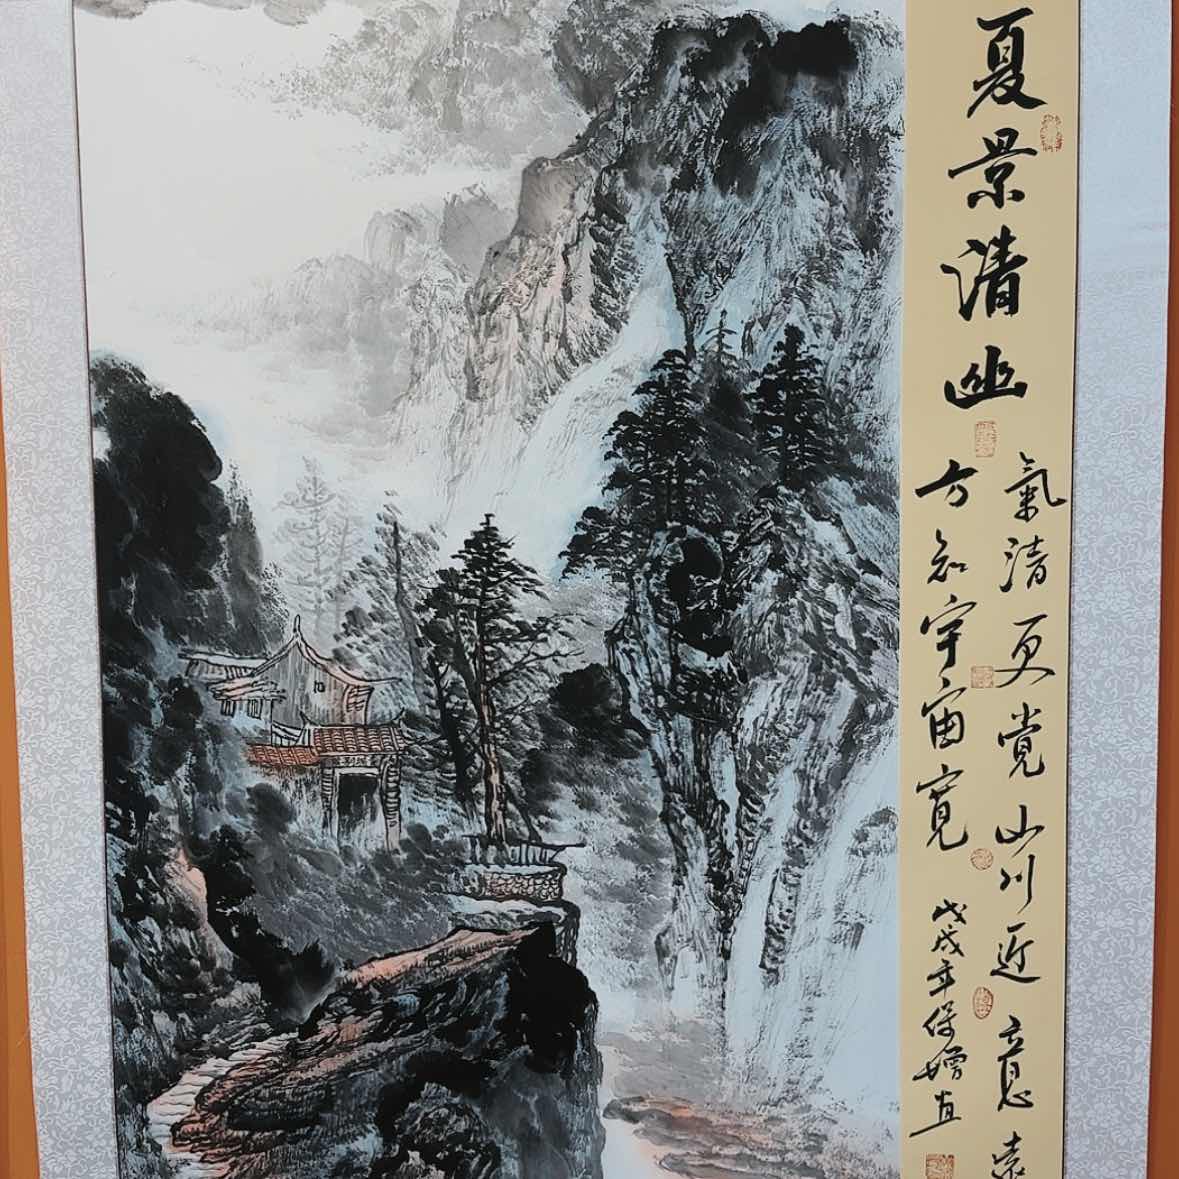 夏景清幽
氣清更覺山川近意遠
方知宇宙寬
戊戌年保嬑直